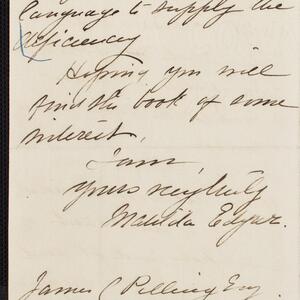 language to supply the
deficiency
Hoping you will
find the book of some
interest,
I am,
yours respectfully
Matilda Edgar.
James C Pilling Esq